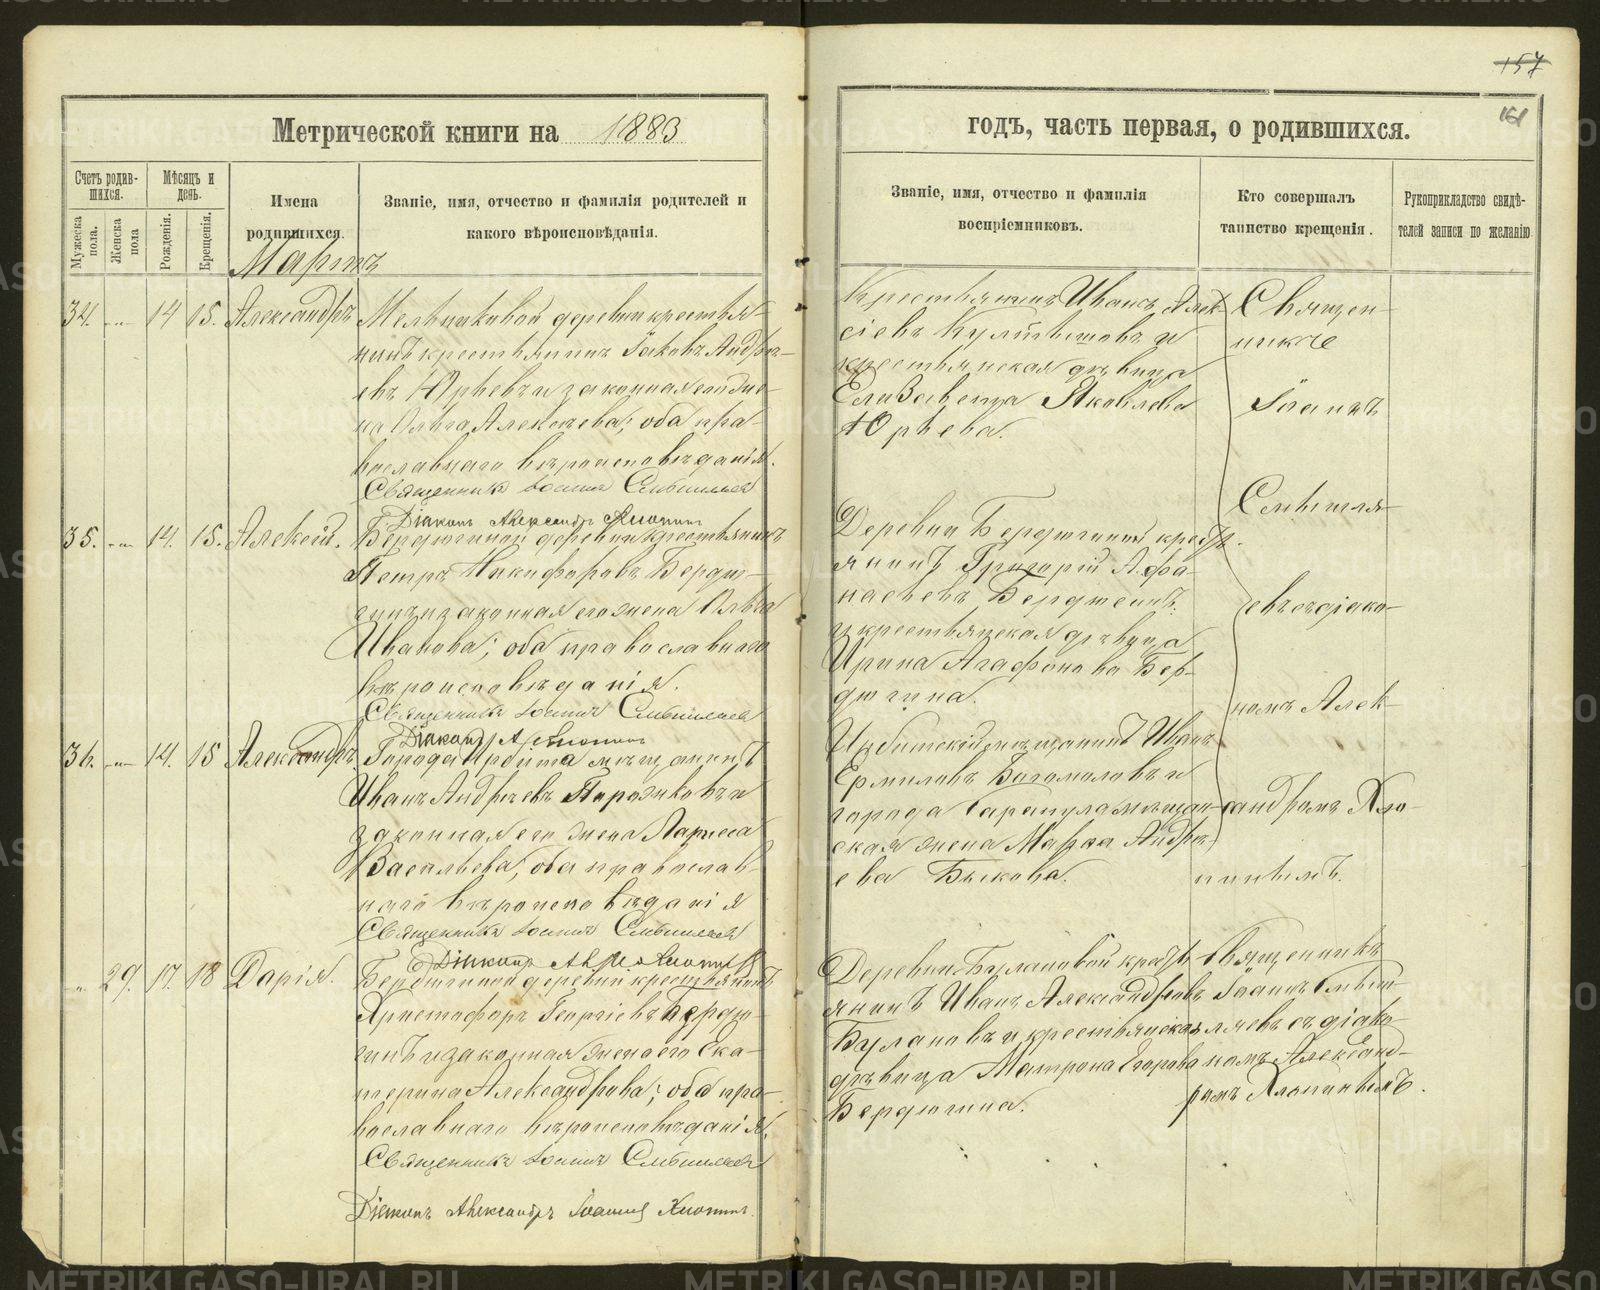 157
161
Метрической книги на 1883
годъ, часть первая, о родившихся.
Счетъ родив-
шихся.
Мужеска пола.
Женска пола
Мѣсяцъ и
день.
Рожденія.
Крещенія.
Имена
родившихся.
Званіе, имя, отчество и фамилія родителей и
какого вѣроисповѣданія.
Званіе, имя, отчество и фамилія
воспріемниковъ.
Кто совершалъ
таинство крещенія.
Рукоприкладство свидѣ-
телей записи по желанію
Мартъ
34. 14 15. Александръ
Мельниковой деревни крестья-
нинъ крестьянинъ Іаковъ Андре-
евъ Юрьевъ и законная его же-
на Ольга Алексѣева; оба пра-
вославнаго вѣроисповѣданія.
Священникъ Іоаннъ Смѣтляевъ
Діаконъ Александръ Хлопинъ
Крестьянинъ Иванъ Алек-
сіевъ и
крестьянская дѣвица
Елизавета Яковлева
Юрьева.
35. 14. 15. Алексій.
Бердюгиной деревни крестьянинъ
Петръ Никифоровъ Бердю-
гинъ и законная его жена Ольга
Иванова; оба православнаго
вѣроисповѣданія.
Священникъ Іоаннъ Смѣтляевъ
Діаконъ А Хлопинъ
Деревни Бердюгиной кресть-
янинъ Григорій Афа-
насьевъ Бердюгинъ
и крестьянская дѣвица
Ирина Агафонова Бер-
дюгина.
36. 14. 15 Александръ.
Города Ирбита мѣщанинъ
Иванъ Андреевъ Порозковъ и
законная его жена Лариса
Васильева; оба православ-
наго вѣроисповѣданія
Священникъ Іоаннъ Смѣтляевъ
Діаконъ Ал Хлопинъ
Ирбитскій мѣщанинъ Иванъ
Ермиловъ Богомоловъ и
города Сарапула мѣщан-
ская жена Марѳа Андре-
ева Быкова.
Священ-
никъ
Іоаннъ
Смѣтля-
евъ съ діако-
номъ Алек-
сандромъ Хло-
пинымъ.
29. 17. 18 Дарія.
Бердюгиной деревни крестьянинъ
Христофоръ Георгіевъ Бердю-
гинъ и законная жена его Ека-
терина Александрова; оба пра-
вославнаго вѣроисповѣданія.
Священникъ Іоаннъ Смѣтляевъ
Діаконъ Александръ Іоанновъ Хлопинъ.
Деревни Булановой кресть-
янинъ Иванъ Александровъ
Булановъ и крестьянская
дѣвица Матрона Егорова
Бердюгина.
Священникъ
Іоаннъ Смѣт-
ляевъ съ діако-
номъ Александ-
ромъ Хлопинымъ.
METRIKI.GASO-URAL.RU